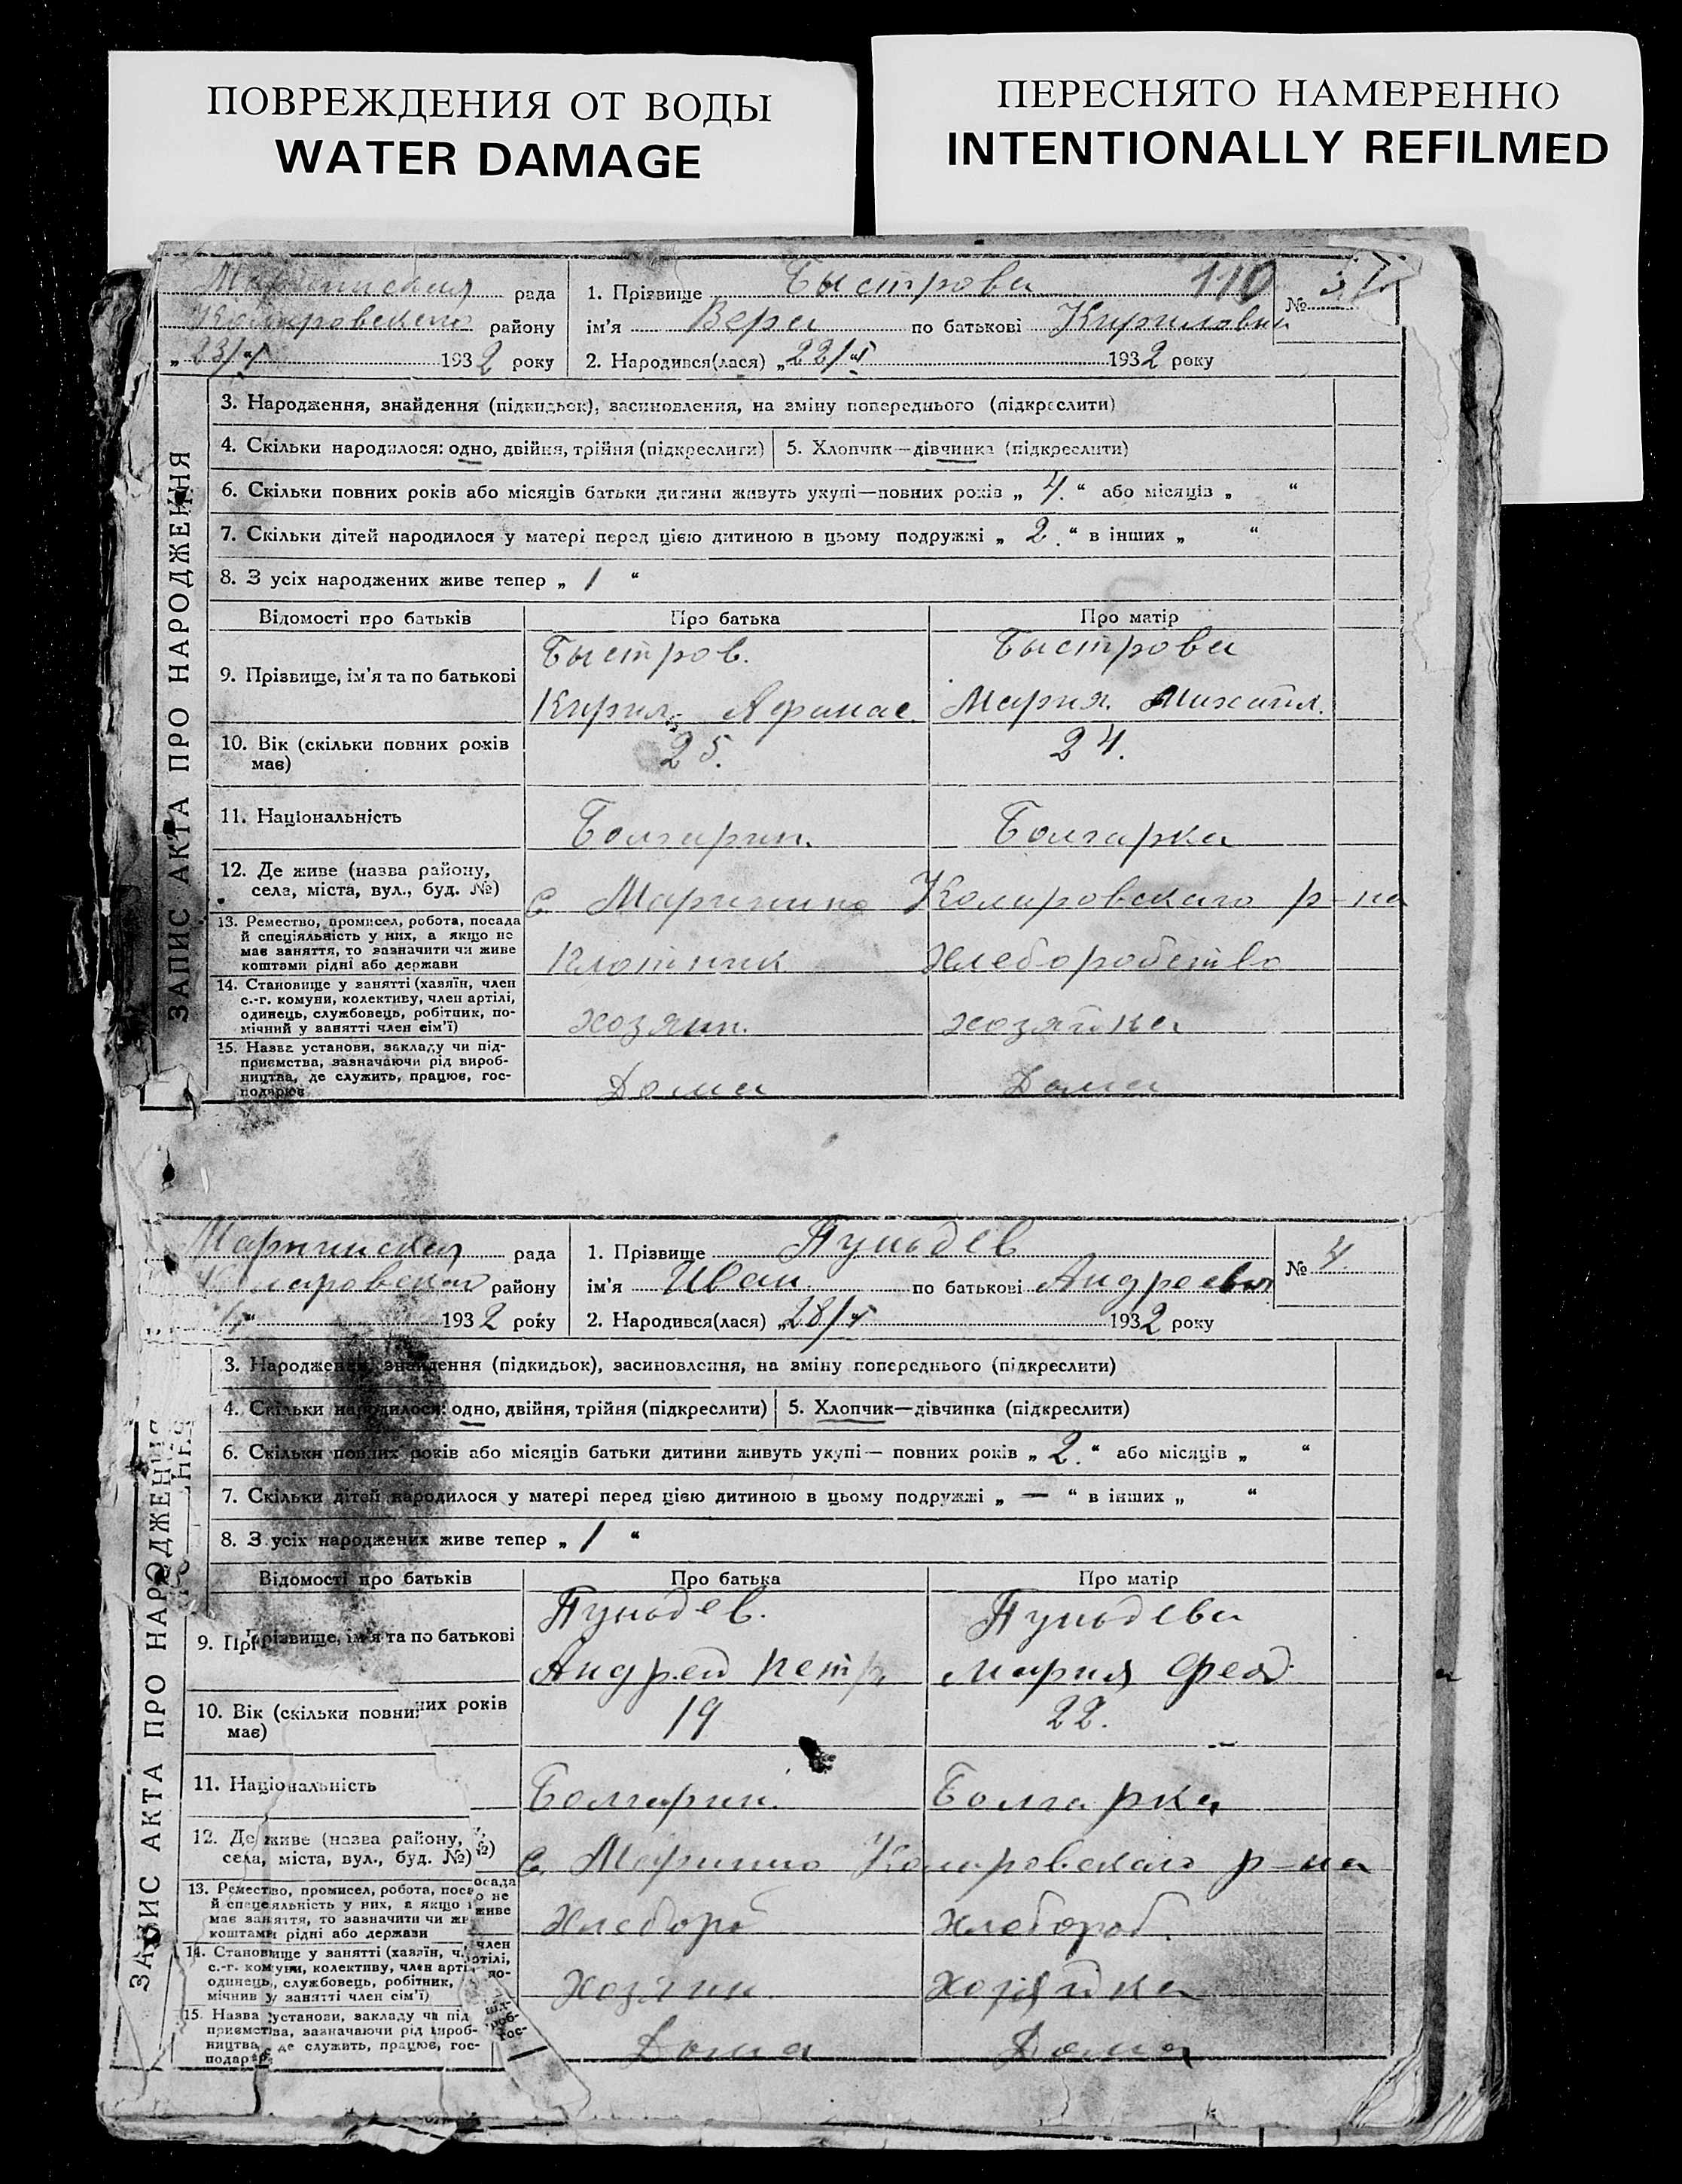 ПОВРЕЖДЕНИЯ ОТ ВОДЫ
WATER DAMAGE
ПЕРЕСНЯТО НАМЕРЕННО
INTENTIONALLY REFILMED
рада
Коларовского району
„23/V 1932 року
1. Прізвище Быстрова 110
ім'я Вера по батькові Кириловна
2. Народився(лася) „22/V 1932 року
№ 3
ЗАПИС АКТА ПРО НАРОДЖЕННЯ
3. Народження, знайдення (підкидьок), засиновлення, на зміну попереднього (підкреслити)
4. Скільки народилося: одно, двійня, трійня (підкреслити) 5. Хлопчик—дівчинка (підкреслити)
6. Скільки повних років або місяців батьки дитини живуть укупі—повних років „ 4. “ або місяців „ “
7. Скільки дітей народилося у матері перед цією дитиною в цьому подружжі „ 2. “ в інших „ “
8. З усіх народжених живе тепер „ 1 “
Відомості про батьків Про батька Про матір
9. Прізвище, ім'я та по батькові
Быстров. Быстрова
Кирил. Афанас. Мария. Михаил.
10. Вік (скільки повних років
має)
25. 24.
11. Національність
Болгарин. Болгарка
12. Де живе (назва району,
села, міста, вул., буд. №)
с Маринино Коларовского р-на
13. Ремество, промисел, робота, посада
й спеціяльність у них, а якщо не
має заняття, то зазначити чи живе
коштами рідні або держави
Плотник Хлеборобство
14. Становище у занятті (хазяїн, член
с.-г. комуни, колективу, член артілі,
одинець, службовець, робітник, по-
мічний у занятті член сім'ї)
хозяин. хозяйка
15. Назва установи, закладу чи під-
приємства, зазначаючи рід вироб-
ництва, де служить, працює, гос-
подарює
Дома Дома
Марининская рада
Коларовского району
1932 року
1. Прізвище Пульдев
ім'я Иван. по батькові Андреевич
2. Народився(лася) „28/V 1932 року
№ 4.
ЗАПИС АКТА ПРО НАРОДЖЕННЯ
3. Народження, знайдення (підкидьок), засиновлення, на зміну попереднього (підкреслити)
4. Скільки народилося: одно, двійня, трійня (підкреслити) 5. Хлопчик—дівчинка (підкреслити)
6. Скільки повних років або місяців батьки дитини живуть укупі— повних років „ 2. “ або місяців „ “
7. Скільки дітей народилося у матері перед цією дитиною в цьому подружжі „ — “ в інших „ “
8. З усіх народжених живе тепер „ 1 “
Відомості про батьків Про батька Про матір
9. Прізвище, ім'я та по батькові
Пульдев. Пульдева
Андрей Петр. Мария Феод.
10. Вік (скільки повних років
має)
19 22.
11. Національність
Болгарин. Болгарка
12. Де живе (назва району,
села, міста, вул., буд. №)
с. Маринино Коларовского р-на
13. Ремество, промисел, робота, посада
й спеціяльність у них, а якщо не
має заняття, то зазначити чи живе
коштами рідні або держави
Хлебороб Хлебороб.
14. Становище у занятті (хазяїн, член
с.-г. комуни, колективу, член артілі,
одинець, службовець, робітник, по-
мічник у занятті член сім'ї)
Хозяин. хозяйка
15. Назва установи, закладу чи під-
приємства, зазначаючи рід вироб-
ництва, де служить, працює, гос-
подарює
Дома Дома